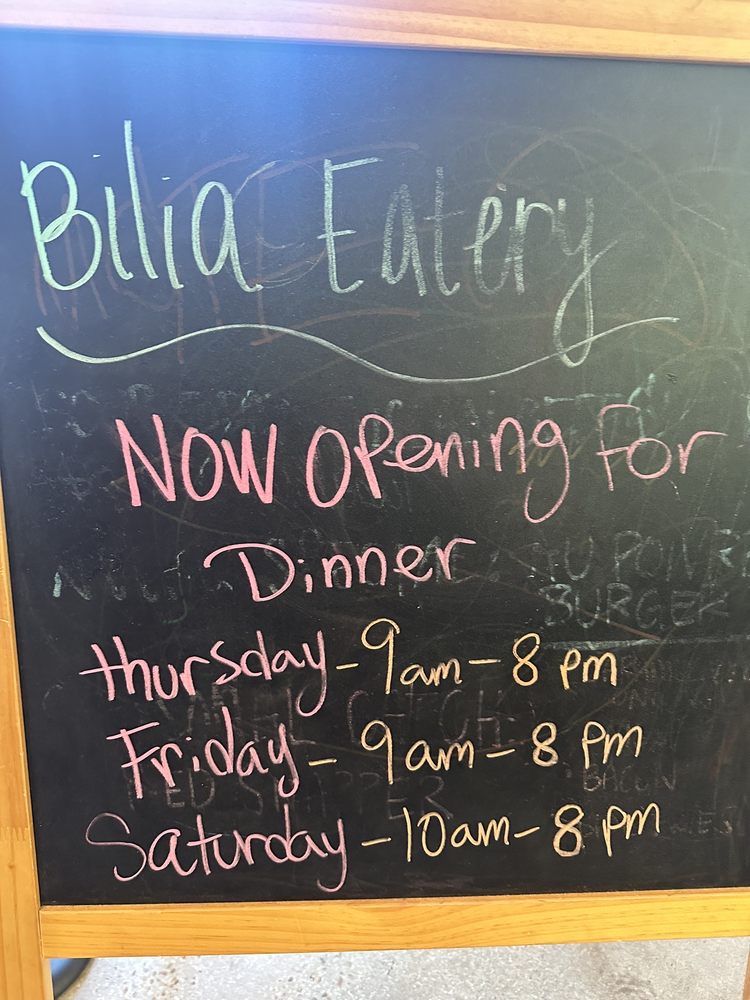 Bilia Eatery
NOW Opening For
Dinner
thursday - 9am - 8 pm
Friday - 9am - 8 pm
Saturday - 10am - 8 pm
BURGER